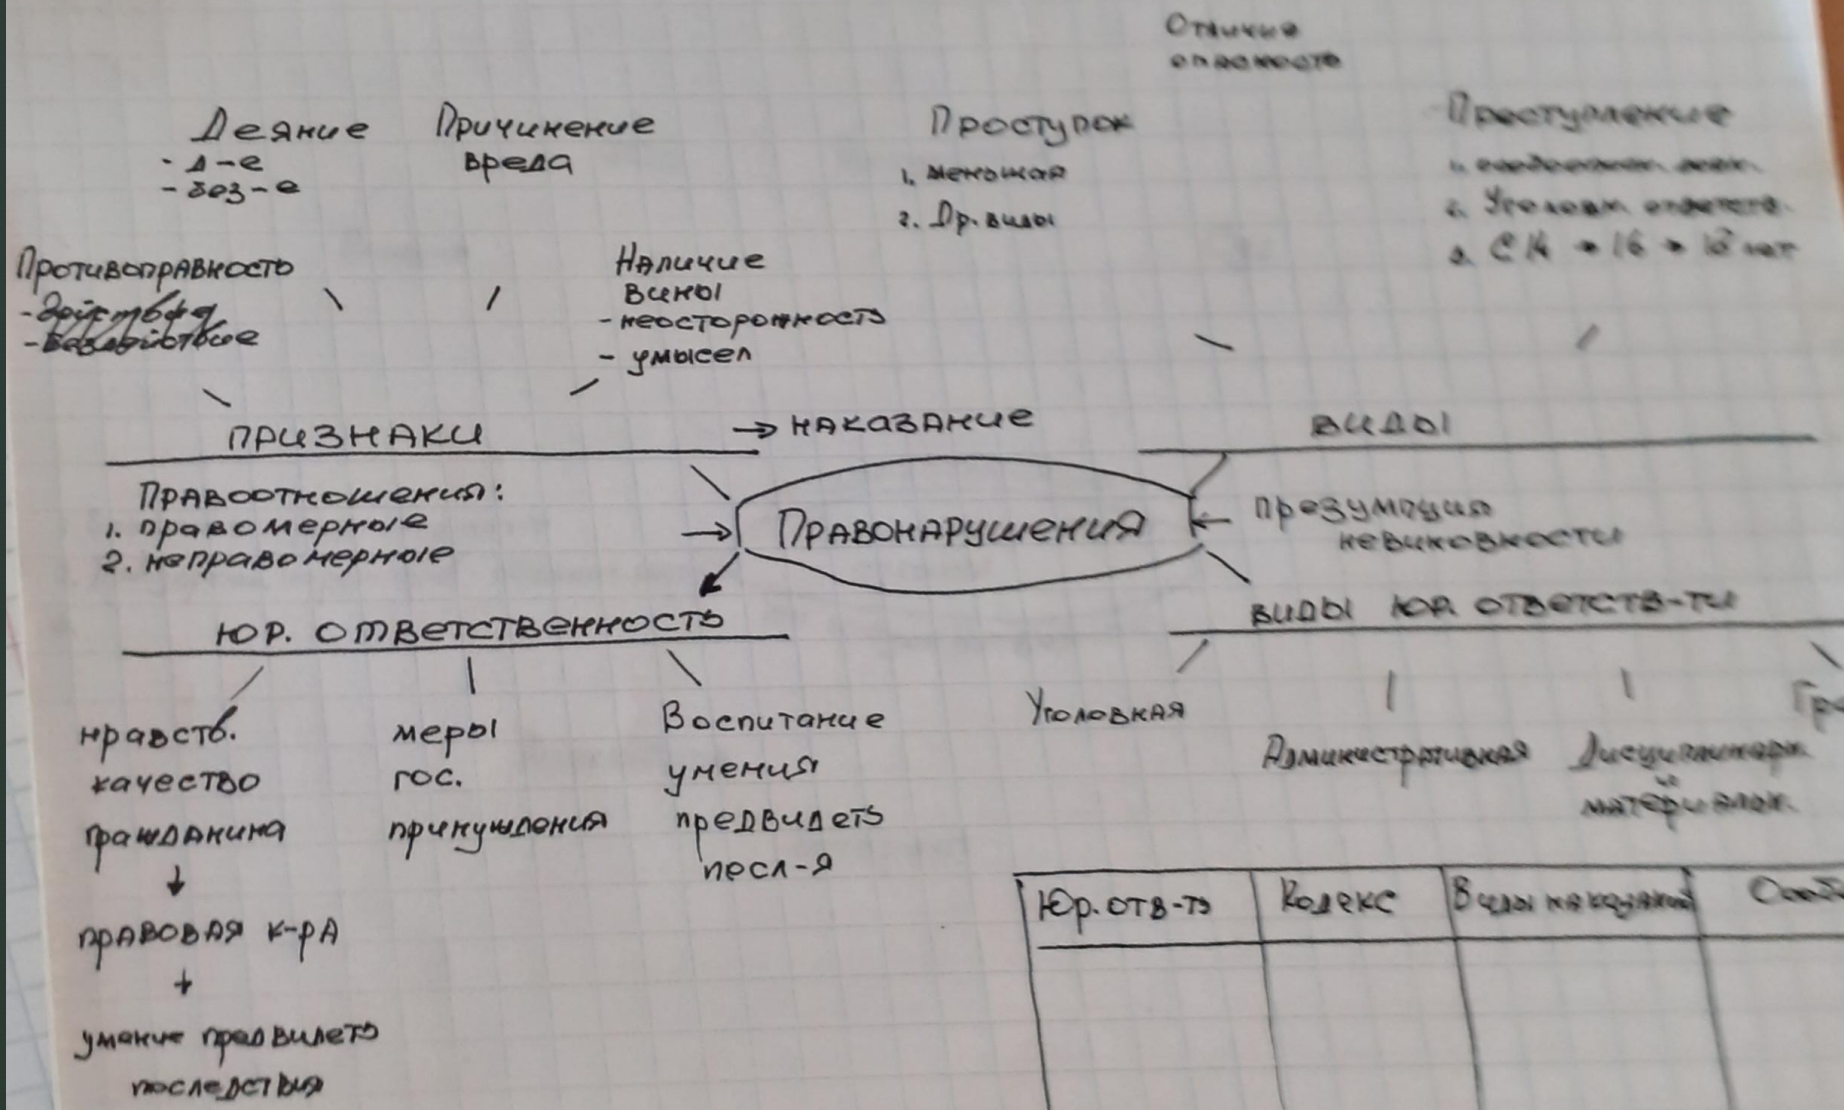 Отличие
опасность
Деяние
- д-е
- без-е
Причинение
вреда
Проступок
1. меньшая
2. Др. виды
Преступление
1.
2. Уголовн. ответств.
3. С 14 → 16 → 18 лет
Противоправность
- Действия
- Бездействие
Наличие
вины
- неосторожность
- умысел
ПРИЗНАКИ
→ наказание
ВИДЫ
Правоотношения:
1. правомерные
2. неправомерные
→ ПРАВОНАРУШЕНИЯ
← презумпция
невиновности
ЮР. ОТВЕТСТВЕННОСТЬ
ВИДЫ ЮР. ОТВЕТСТВ-ТИ
нравств.
качество
гражданина
↓
ПРАВОВАЯ К-РА
↓
умение предвидеть
последствия
меры
гос.
принуждения
Воспитание
умения
предвидеть
посл-я
Уголовная
Административная
Дисциплинарн.
и
материальн.
Юр. отв-ть
Кодекс
Виды наказаний